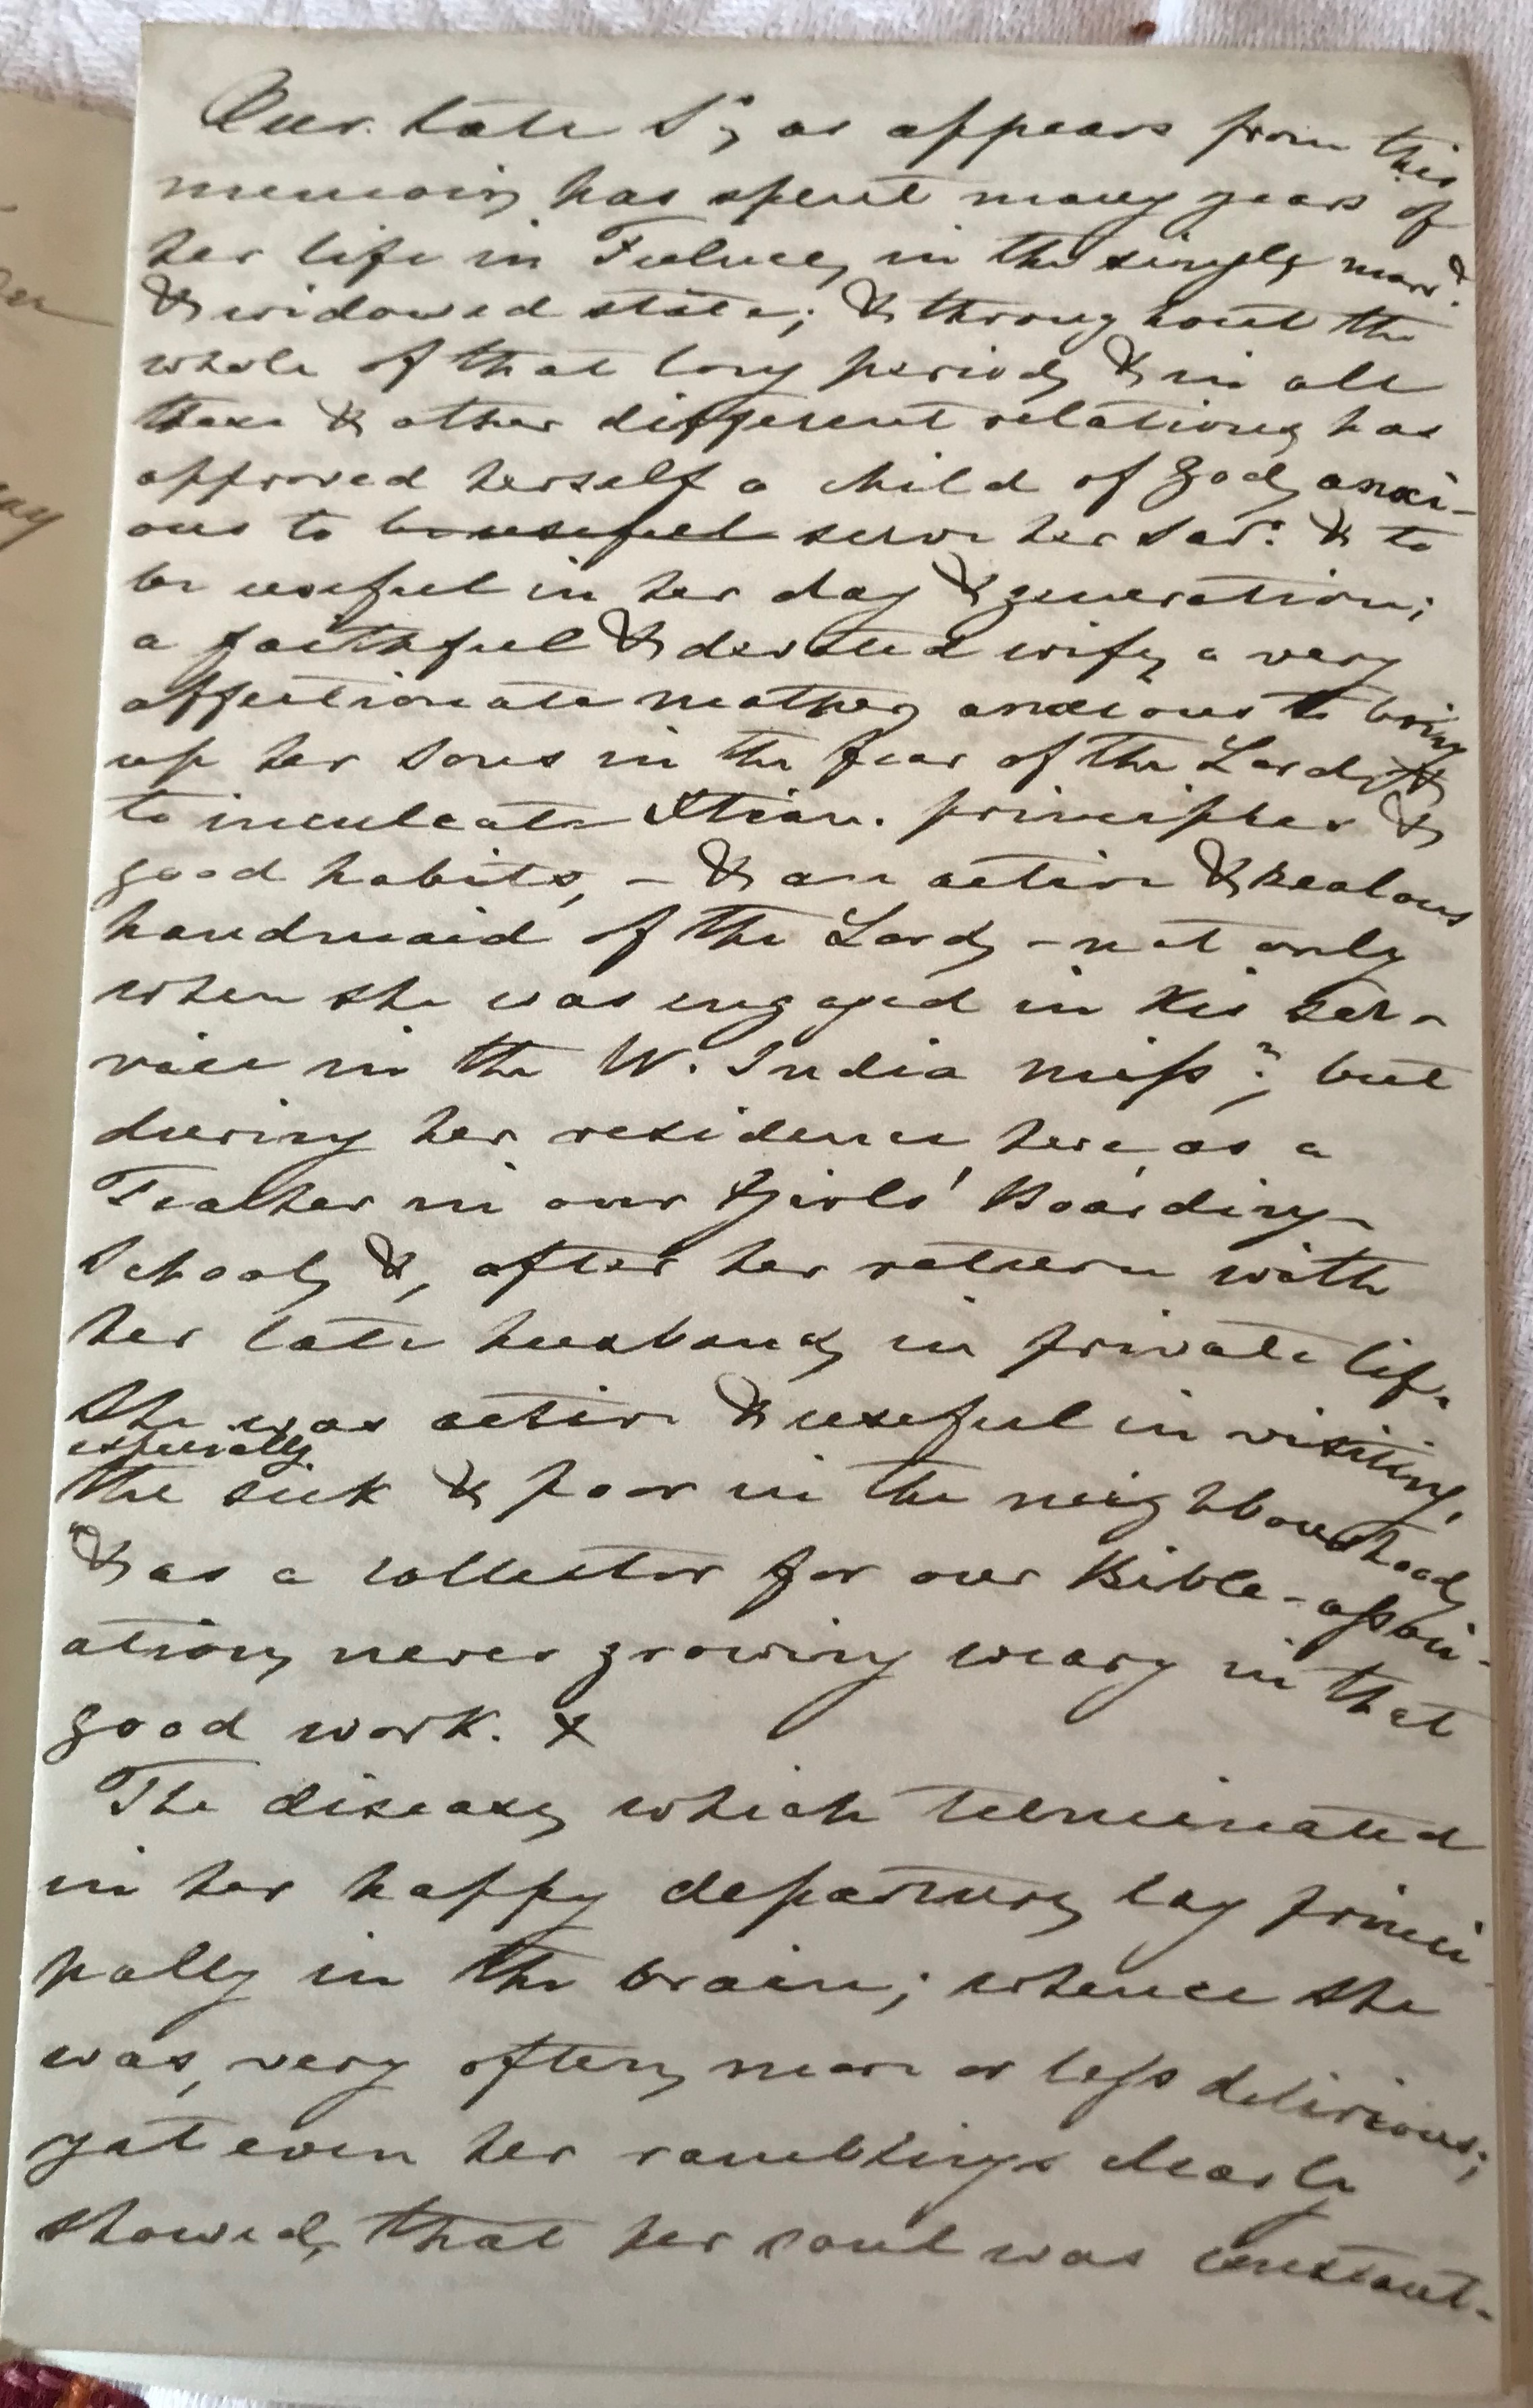 Our late Sr, as appears from this
memoir, has spent many years of
her life in Fulnec, in the single, marrd.
& widowed state; & throughout the
whole of that long period, & in all
these & other different relations, has
approved herself a child of God, anxi-
ous to be useful serve her Savr. & to
be useful in her day & generation;
a faithful & devoted wife, a very
affectionate mother, anxious to bring
up her sons in the fear of the Lord, &
to inculcate Xtian. principles &
good habits, - & an active & zealous
handmaid of the Lord, - not only
when she was engaged in His ser-
vice in the W. India missn., but
during her residence here, as a
Teacher in our Girls' Boarding-
School, &, after her return with
her late husband, in private life
she was active & useful in visiting,
especially
the sick & poor in the neighbourhood,
& as a collector for our Bible-associ-
ation, never growing weary in that
good work. x
The disease, which terminated
in her happy departure, lay princi-
pally in the brain; whence she
was, very often, more or less delirious;
yet even her ramblings clearly
showed, that her soul was constant-